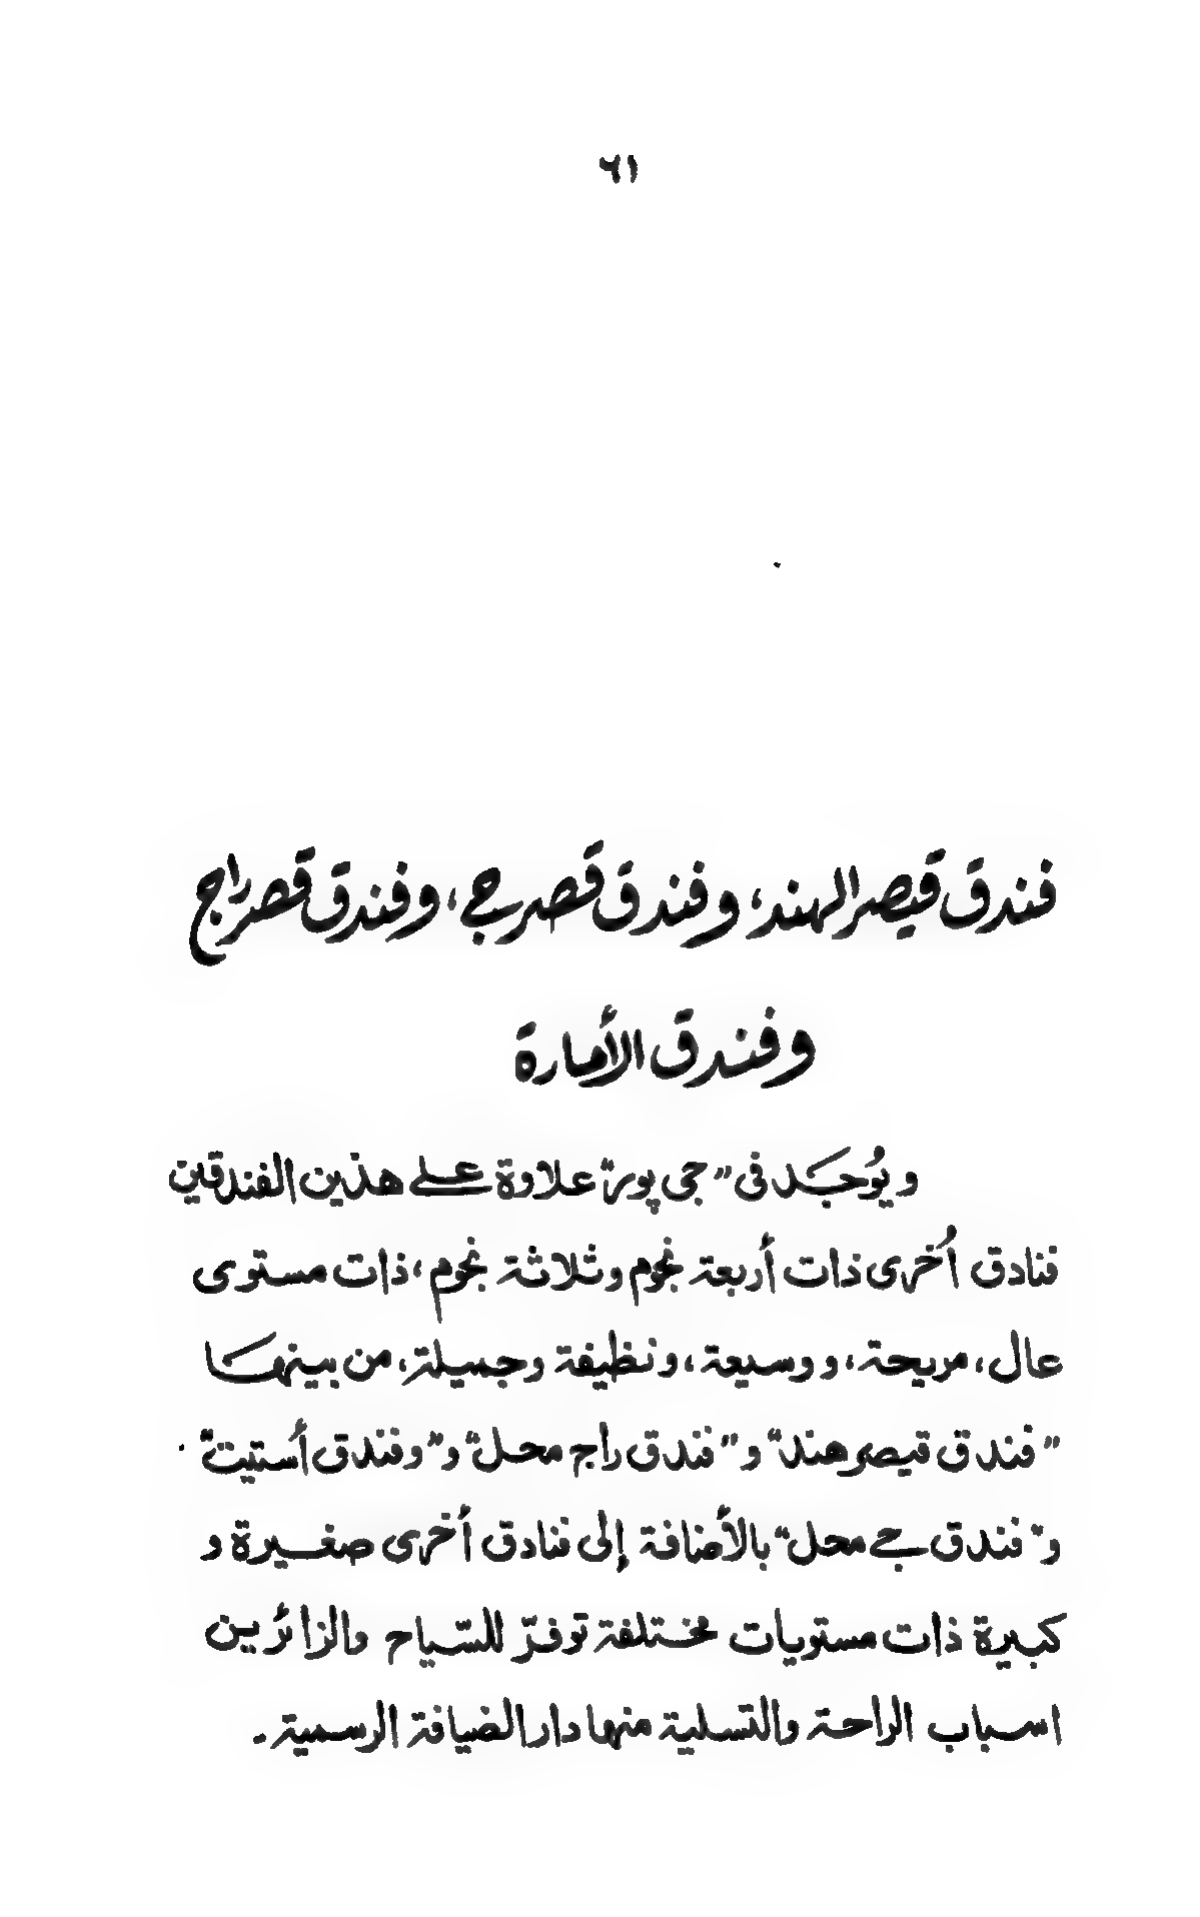 ٦١
فندق قيصر الهند، وفندق قصر جے، وفندق قصر راج
وفندق الأمارة
ويُوجَد فى "جى پور" علاوة علے هذين الفندقين
فنادق اُخرى ذات أربعة نجوم وثلاثة نجوم، ذات مستوى
عال، مريحة، ووسيعة، ونظيفة وجميلة، من بينهَا
"فندق قيصر هند" و"فندق راج محل" و"وفندق أستيت".
و"فندق جے محل" بالأضافة إلى فنادق أخرى صغيرة و
كبيرة ذات مستويات مختلفة توفرّ للسّياح والزائرين
اسباب الراحة والتسلية منها دار الضيافة الرسمية.